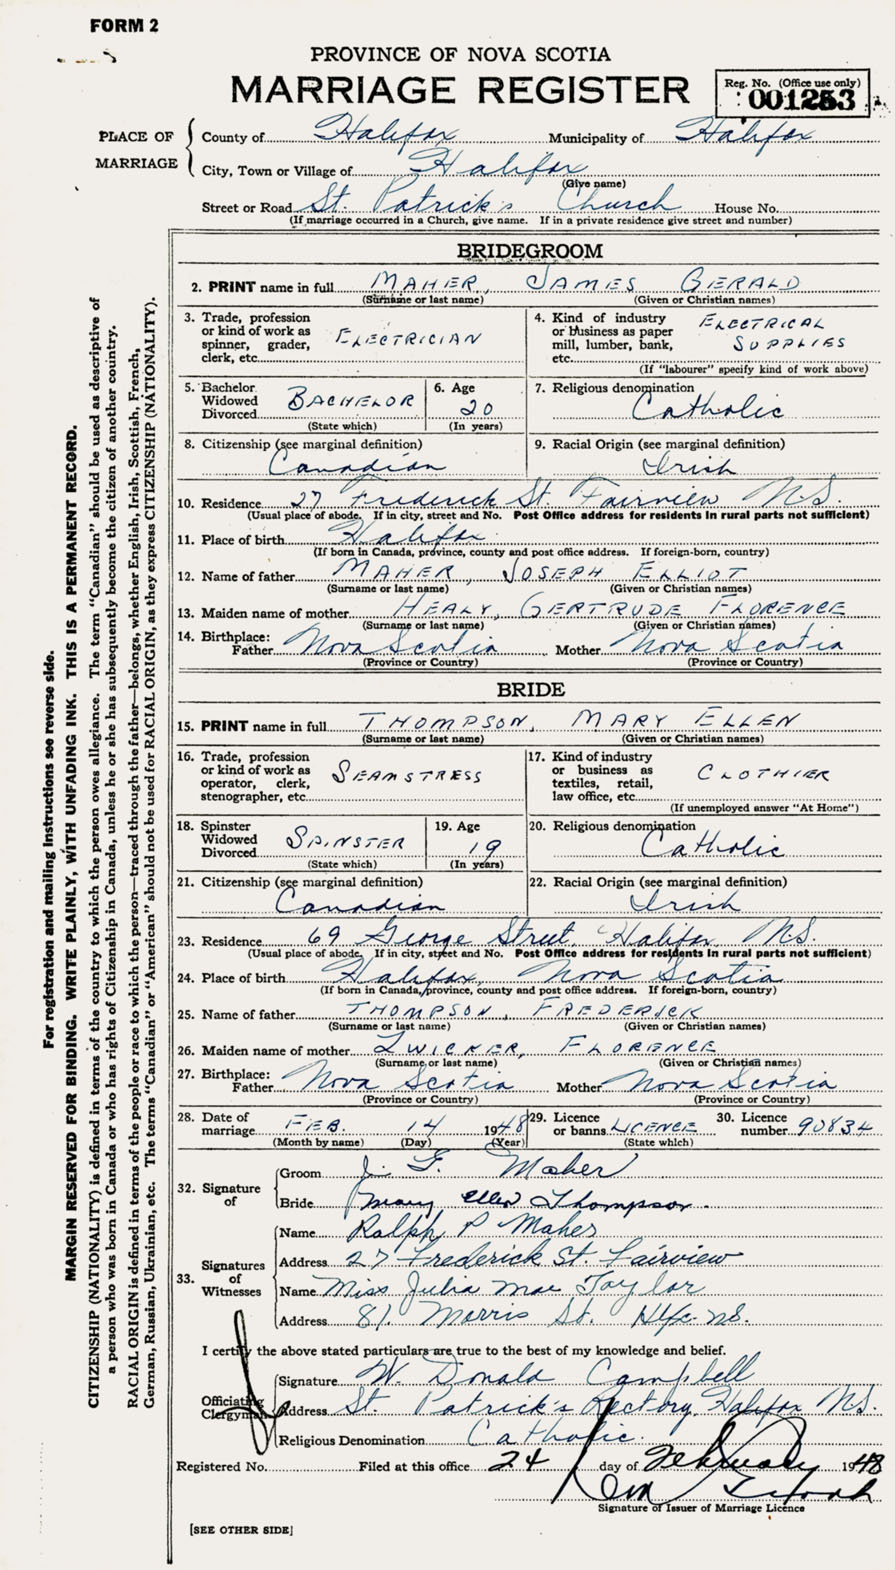 FORM 2
PROVINCE OF NOVA SCOTIA
MARRIAGE REGISTER
Reg. No. (Office use only)
001253
PLACE OF MARRIAGE
County of Halifax Municipality of Halifax
City, Town or Village of Halifax
(Give name)
Street or Road St. Patrick's Church House No.
(If marriage occurred in a Church, give name. If in a private residence give street and number)
BRIDEGROOM
2. PRINT name in full MAHER, JAMES GERALD
(Surname or last name) (Given or Christian names)
3. Trade, profession or kind of work as spinner, grader, clerk, etc. ELECTRICIAN
4. Kind of industry or business as paper mill, lumber, bank, etc. ELECTRICAL SUPPLIES
(If "labourer" specify kind of work above)
5. Bachelor Widowed Divorced BACHELOR
(State which)
6. Age 20
(In years)
7. Religious denomination Catholic
8. Citizenship (see marginal definition) Canadian
9. Racial Origin (see marginal definition) Irish
10. Residence 27 Frederick St. Fairview N.S.
(Usual place of abode. If in city, street and No. Post Office address for residents in rural parts not sufficient)
11. Place of birth Halifax
(If born in Canada, province, county and post office address. If foreign-born, country)
12. Name of father MAHER, JOSEPH ELLIOT
(Surname or last name) (Given or Christian names)
13. Maiden name of mother HEALY, GERTRUDE FLORENCE
(Surname or last name) (Given or Christian names)
14. Birthplace: Father Nova Scotia Mother Nova Scotia
(Province or Country) (Province or Country)
BRIDE
15. PRINT name in full THOMPSON, MARY ELLEN
(Surname or last name) (Given or Christian names)
16. Trade, profession or kind of work as operator, clerk, stenographer, etc. SEAMSTRESS
17. Kind of industry or business as textiles, retail, law office, etc. CLOTHIER
(If unemployed answer "At Home")
18. Spinster Widowed Divorced SPINSTER
(State which)
19. Age 19
(In years)
20. Religious denomination Catholic
21. Citizenship (see marginal definition) Canadian
22. Racial Origin (see marginal definition) Irish
23. Residence 69 George Street, Halifax N.S.
(Usual place of abode. If in city, street and No. Post Office address for residents in rural parts not sufficient)
24. Place of birth Halifax, Nova Scotia
(If born in Canada, province, county and post office address. If foreign-born, country)
25. Name of father THOMPSON, FREDERICK
(Surname or last name) (Given or Christian names)
26. Maiden name of mother ZWICKER, FLORENCE
(Surname or last name) (Given or Christian names)
27. Birthplace: Father Nova Scotia Mother Nova Scotia
(Province or Country) (Province or Country)
28. Date of marriage FEB. 14 1948
(Month by name) (Day) (Year)
29. Licence or banns LICENCE
(State which)
30. Licence number 90834
32. Signature of
Groom J. G. Maher
Bride Mary Ellen Thompson
33. Signatures of Witnesses
Name Ralph P Maher
Address 27 Frederick St. Fairview
Name Miss Julia Mae Taylor
Address 81 Morris St. Hfx. N.S.
I certify the above stated particulars are true to the best of my knowledge and belief.
Officiating Clergyman
Signature W. Donald Campbell
Address St. Patrick's Rectory, Halifax N.S.
Religious Denomination Catholic.
Registered No. Filed at this office 24 day of February 1948
Signature of Issuer of Marriage Licence
[SEE OTHER SIDE]
For registration and mailing instructions see reverse side.
MARGIN RESERVED FOR BINDING. WRITE PLAINLY, WITH UNFADING INK. THIS IS A PERMANENT RECORD.
CITIZENSHIP (NATIONALITY) is defined in terms of the country to which the person owes allegiance. The term "Canadian" should be used as descriptive of
a person who was born in Canada or who has rights of Citizenship in Canada, unless he or she has subsequently become the citizen of another country.
RACIAL ORIGIN is defined in terms of the people or race to which the person—traced through the father—belongs, whether English, Irish, Scottish, French,
German, Russian, Ukrainian, etc. The terms "Canadian" or "American" should not be used for RACIAL ORIGIN, as they express CITIZENSHIP (NATIONALITY).